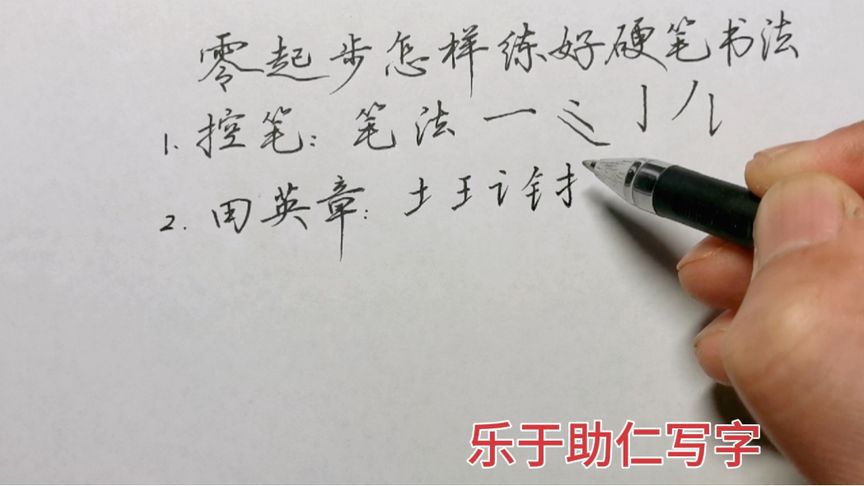 零起步怎样练好硬笔书法
1. 控笔：笔法 一 辶 亅 八
2. 田英章：土 王 讠 钅 扌
乐于助仁写字